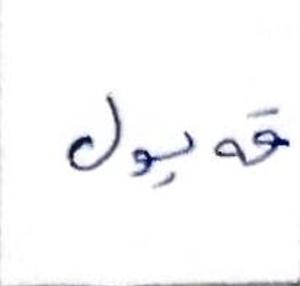 قەبول